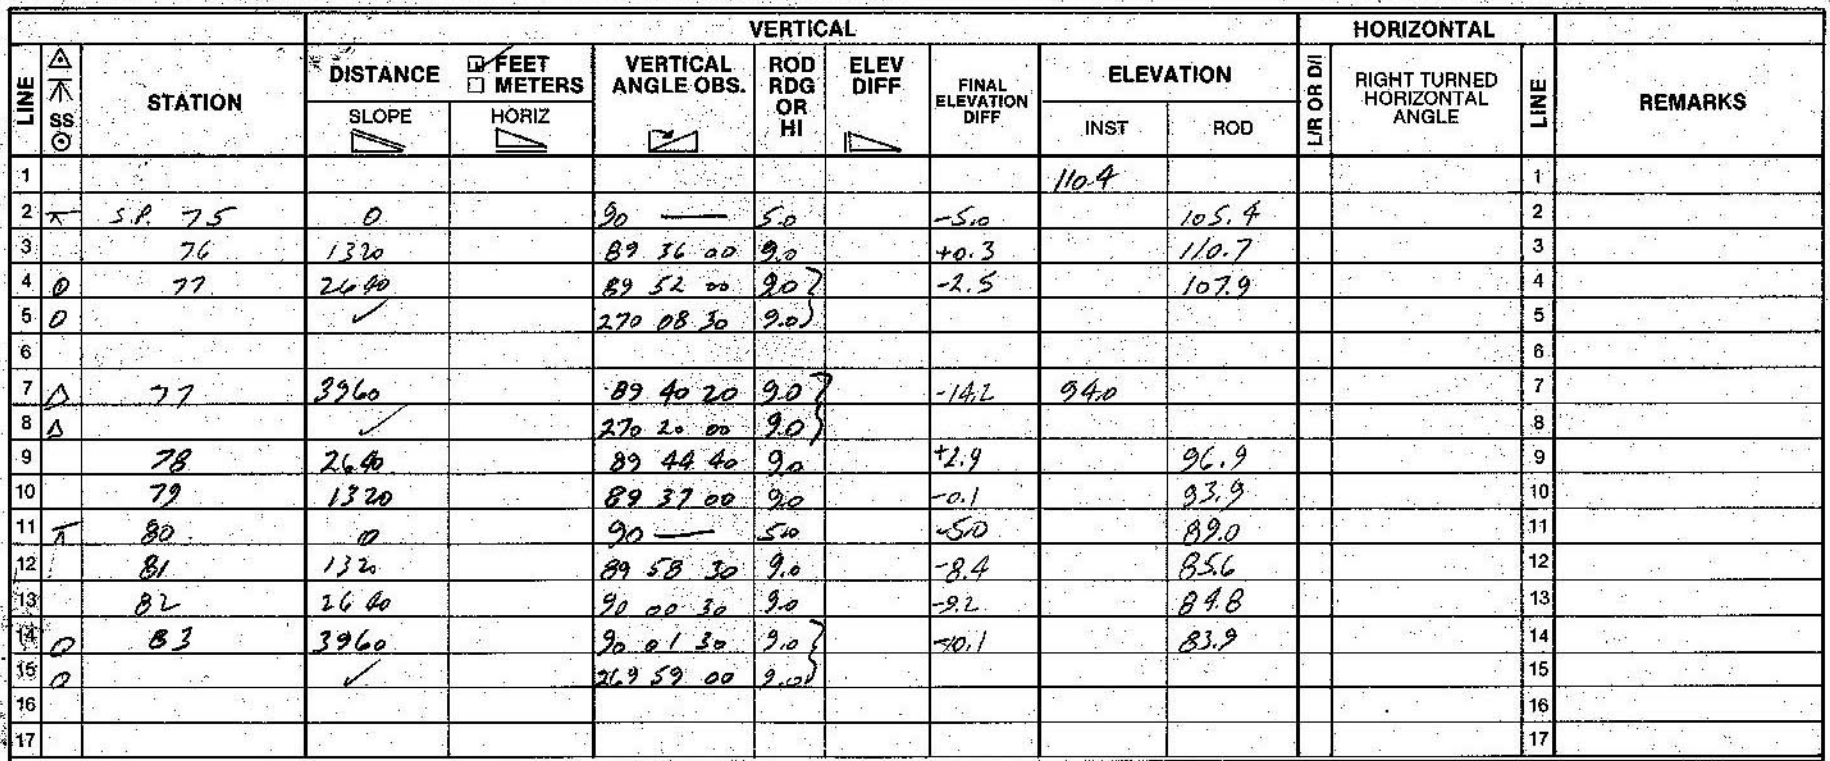 VERTICAL HORIZONTAL
LINE SS STATION DISTANCE FEET METERS SLOPE HORIZ VERTICAL ANGLE OBS. ROD RDG OR HI ELEV DIFF FINAL ELEVATION DIFF ELEVATION INST ROD L/R OR D/I RIGHT TURNED HORIZONTAL ANGLE LINE REMARKS
1 110.4 1
2 S.P. 75 0 90 — 5.0 -5.0 105.4 2
3 76 1320 89 36 00 9.0 +0.3 110.7 3
4 77 2640 89 52 00 9.0 -2.5 107.9 4
5 ✓ 270 08 30 9.0 5
6 6
7 77 3960 89 40 20 9.0 -14.2 94.0 7
8 ✓ 270 20 00 9.0 8
9 78 2640 89 44 40 9.0 +2.9 96.9 9
10 79 1320 89 37 00 9.0 -0.1 93.9 10
11 80 0 90 — 5.0 -5.0 89.0 11
12 81 1320 89 58 30 9.0 -8.4 85.6 12
13 82 2640 90 00 30 9.0 -9.2 84.8 13
14 83 3960 90 01 30 9.0 -10.1 83.9 14
15 ✓ 269 59 00 9.0 15
16 16
17 17